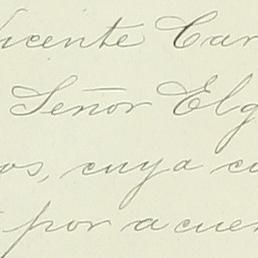 Vicente Car
Señor Elg
os, cuya co
por acuer